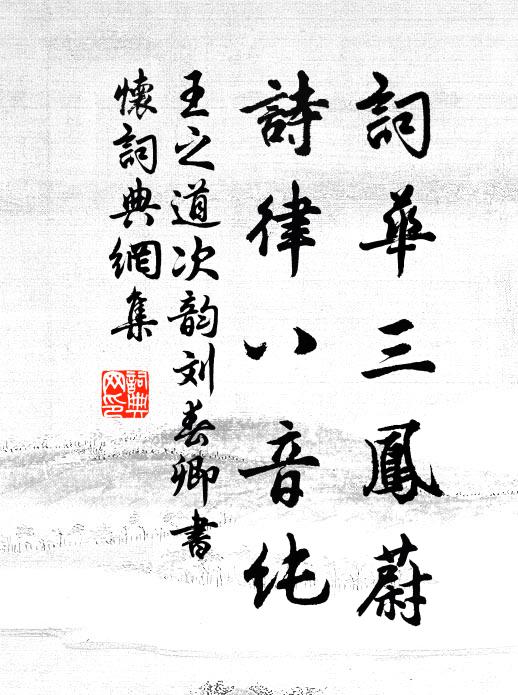 詞華三鳳蔚
詩律八音純
王之道次韵刘春卿書
懷詞典網集
詞典网印